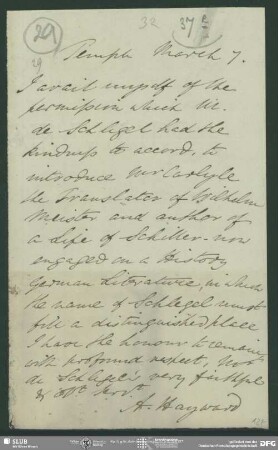 29
32
37
29
Temple March 7.
I avail myself of the
permission which M.
de Schlegel had the
kindness to accord, to
introduce Mr Carlyle
the Translator of Wilhelm
Meister and author of
a Life of Schiller - now
engaged on a History
German Literature, in which
the name of Schlegel must
fill a distinguished place
I have the honour to remain
with profound respect, Mons
de Schlegel's very faithful
& obt servt.
A. Hayward
SLUB
DFG